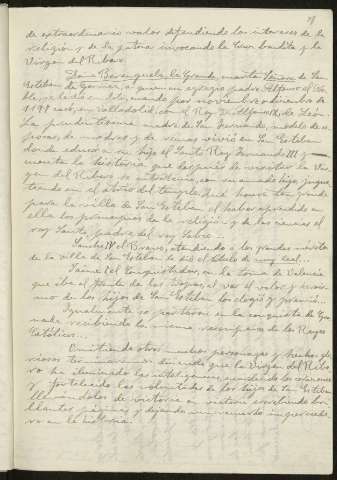 de extraordinario valor defendiendo los intereses de la
religión y de la patria invocando la Cruz bendita y la
Virgen del Ribero.
Doña Berenguela la Grande, cuarta Señora de San
Esteban de Gormaz, a quien su egregio padre Alfonso el No-
ble, se la dió en dote, cuando por noviembre o diciembre de
1197 casó, en Valladolid, con el Rey D. Alfonso IX, de León.
La prudentísima madre de San Fernando, modelo de es-
posas, de madres y de reinas vivió en San Esteban
donde educó a su hijo el Santo Rey Fernando III y
cuenta la historia que después de visitar la Vir-
gen del Ribero se entretenía con su amado hijo jugue-
teando en el atrio del templo. Qué honra tan grande
para la villa de San Esteban el haber aprendido en
ella los principios de la religión y de las ciencias el
rey Santo, padre del rey Sabio.
Sancho IV el Bravo, atendiendo a los grandes méritos
de la villa de San Esteban le dió el título de muy leal...
Jaime I el Conquistador, en la toma de Valencia
que iba al frente de las tropas, al ver el valor y herois-
mo de los hijos de San Esteban los elogió y premió...
Igualmente se portaron en la conquista de Gra-
nada recibiendo la misma recompensa de los Reyes
Católicos...
Omitiendo otros muchos personajes y hechos glo-
riosos terminamos diciendo que la Virgen del Ribe-
ro ha iluminado las inteligencias, encendido los corazones
y fortalecido las voluntades de los hijos de San Esteban
llevándolos de victoria en victoria escribiendo bri-
llantes páginas y dejando un recuerdo imperecede-
ro en la historia.